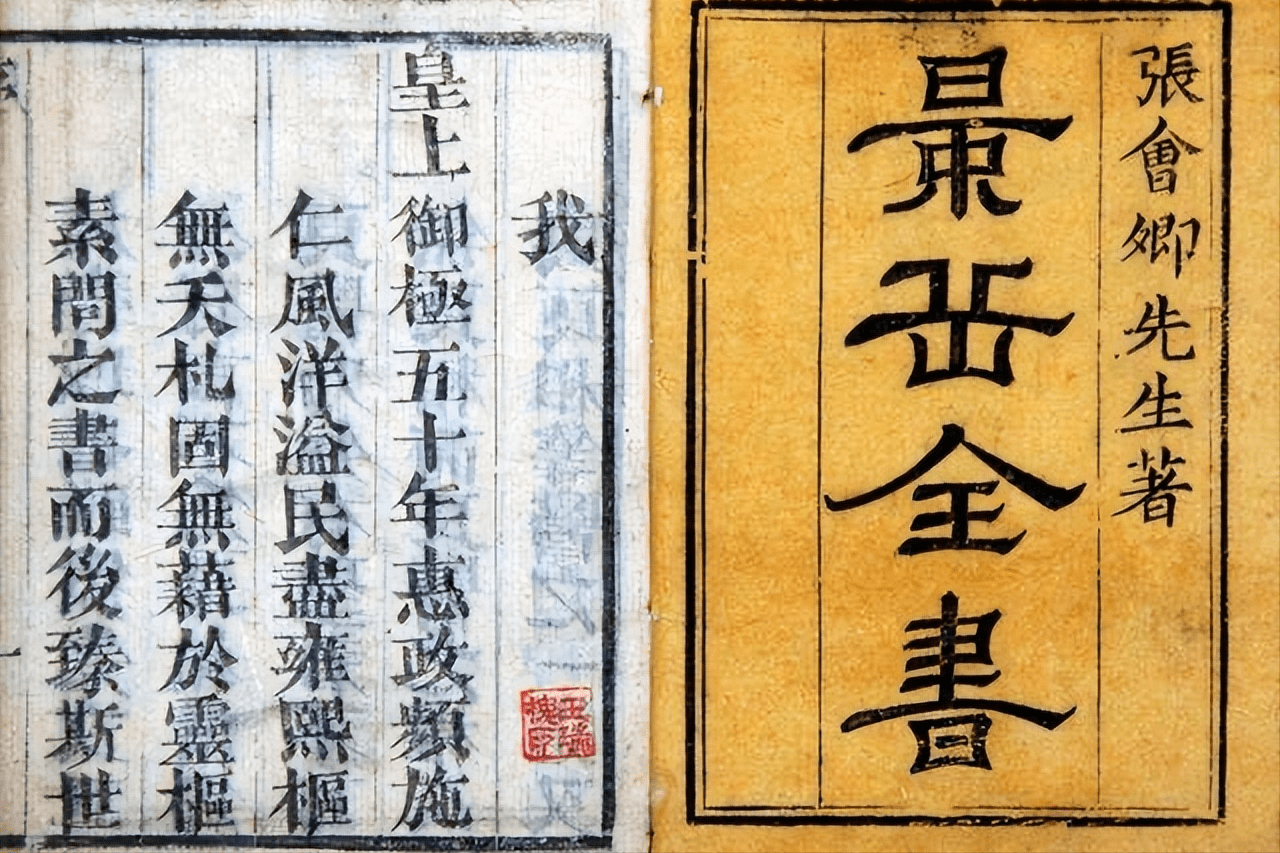 張會卿先生著
景岳全書
我
皇上御極五十年惠政頻施
仁風洋溢民盡雍熙樞
無夭札固無藉於靈樞
素問之書而後臻斯世